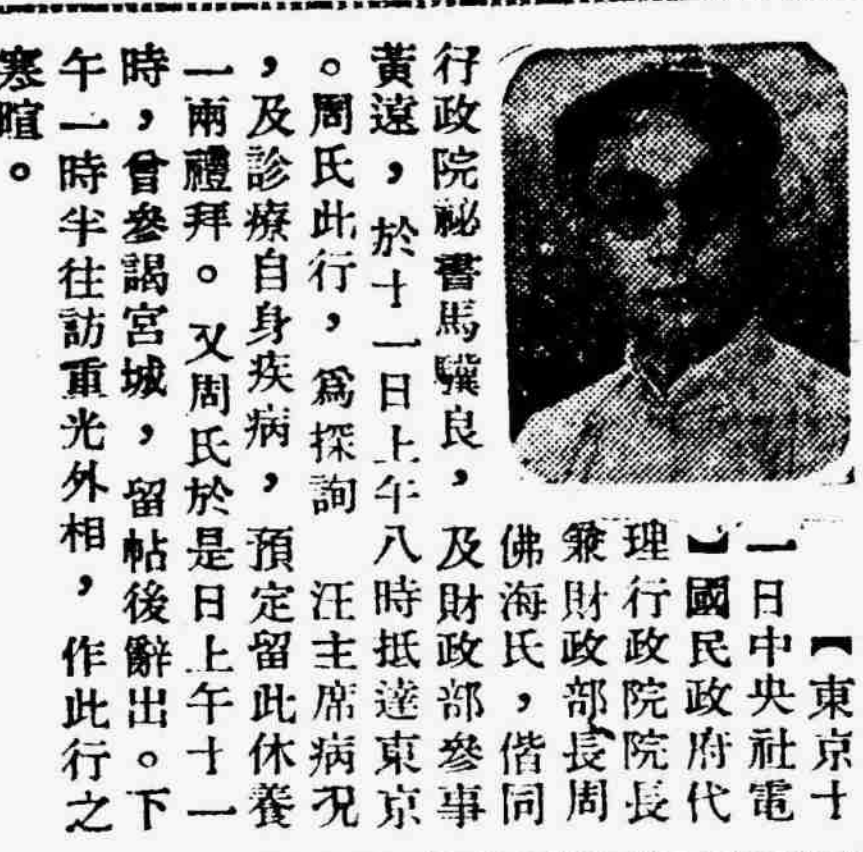 【東京十
一日中央社電
】國民政府代
理行政院院長
兼財政部長周
佛海氏，偕同
行政院祕書馬驥良，及財政部參事
黃遠，於十一日上午八時抵達東京
。周氏此行，爲探詢　汪主席病況
，及診療自身疾病，預定留此休養
一兩禮拜。又周氏於是日上午十一
時，曾參謁宮城，留帖後辭出。下
午一時半往訪重光外相，作此行之
寒暄。